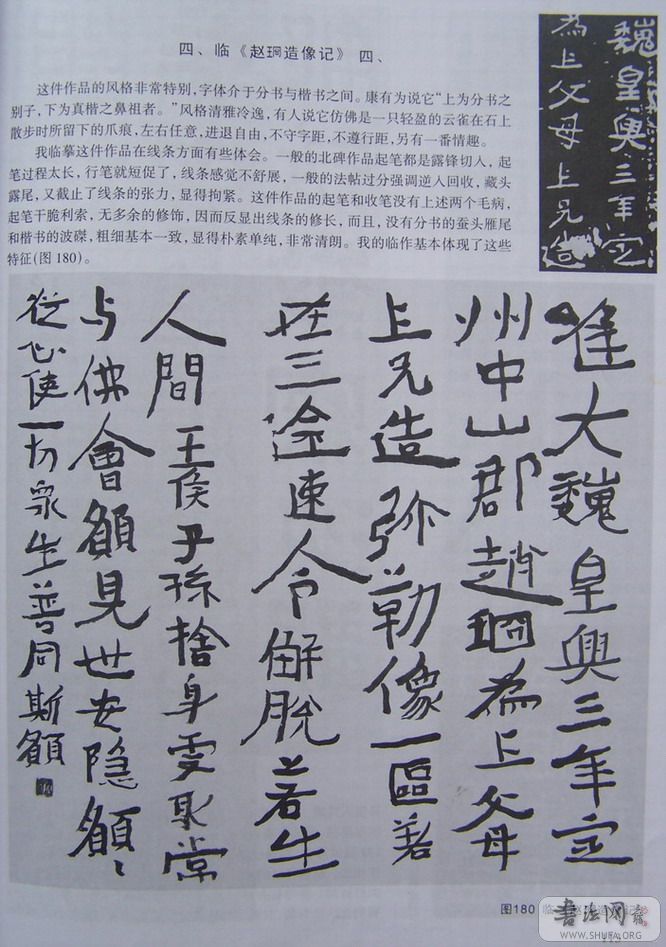 四、临《赵珚造像记》四、
这件作品的风格非常特别，字体介于分书与楷书之间。康有为说它“上为分书之
别子，下为真楷之鼻祖者。”风格清雅冷逸，有人说它仿佛是一只轻盈的云雀在石上
散步时所留下的爪痕，左右任意，进退自由，不守字距，不遵行距，另有一番情趣。
我临摹这件作品在线条方面有些体会。一般的北碑作品起笔都是露锋切入，起
笔过程太长，行笔就短促了，线条感觉不舒展，一般的法帖过分强调逆入回收，藏头
露尾，又截止了线条的张力，显得拘紧。这件作品的起笔和收笔没有上述两个毛病，
起笔干脆利索，无多余的修饰，因而反显出线条的修长，而且，没有分书的蚕头雁尾
和楷书的波磔，粗细基本一致，显得朴素单纯，非常清朗。我的临作基本体现了这些
特征(图180)。
魏皇興三年定
為上父母上兄造
唯大魏皇興三年定
州中山郡趙珚為上父母
上兄造弥勒像一區若
在三途速令解脫若生
人間王侯子孫捨身受
与佛會願見世安隐願
從心使一切眾生普同斯願
图180 临《赵珚造像记》
书法网
WWW.SHUFA.ORG